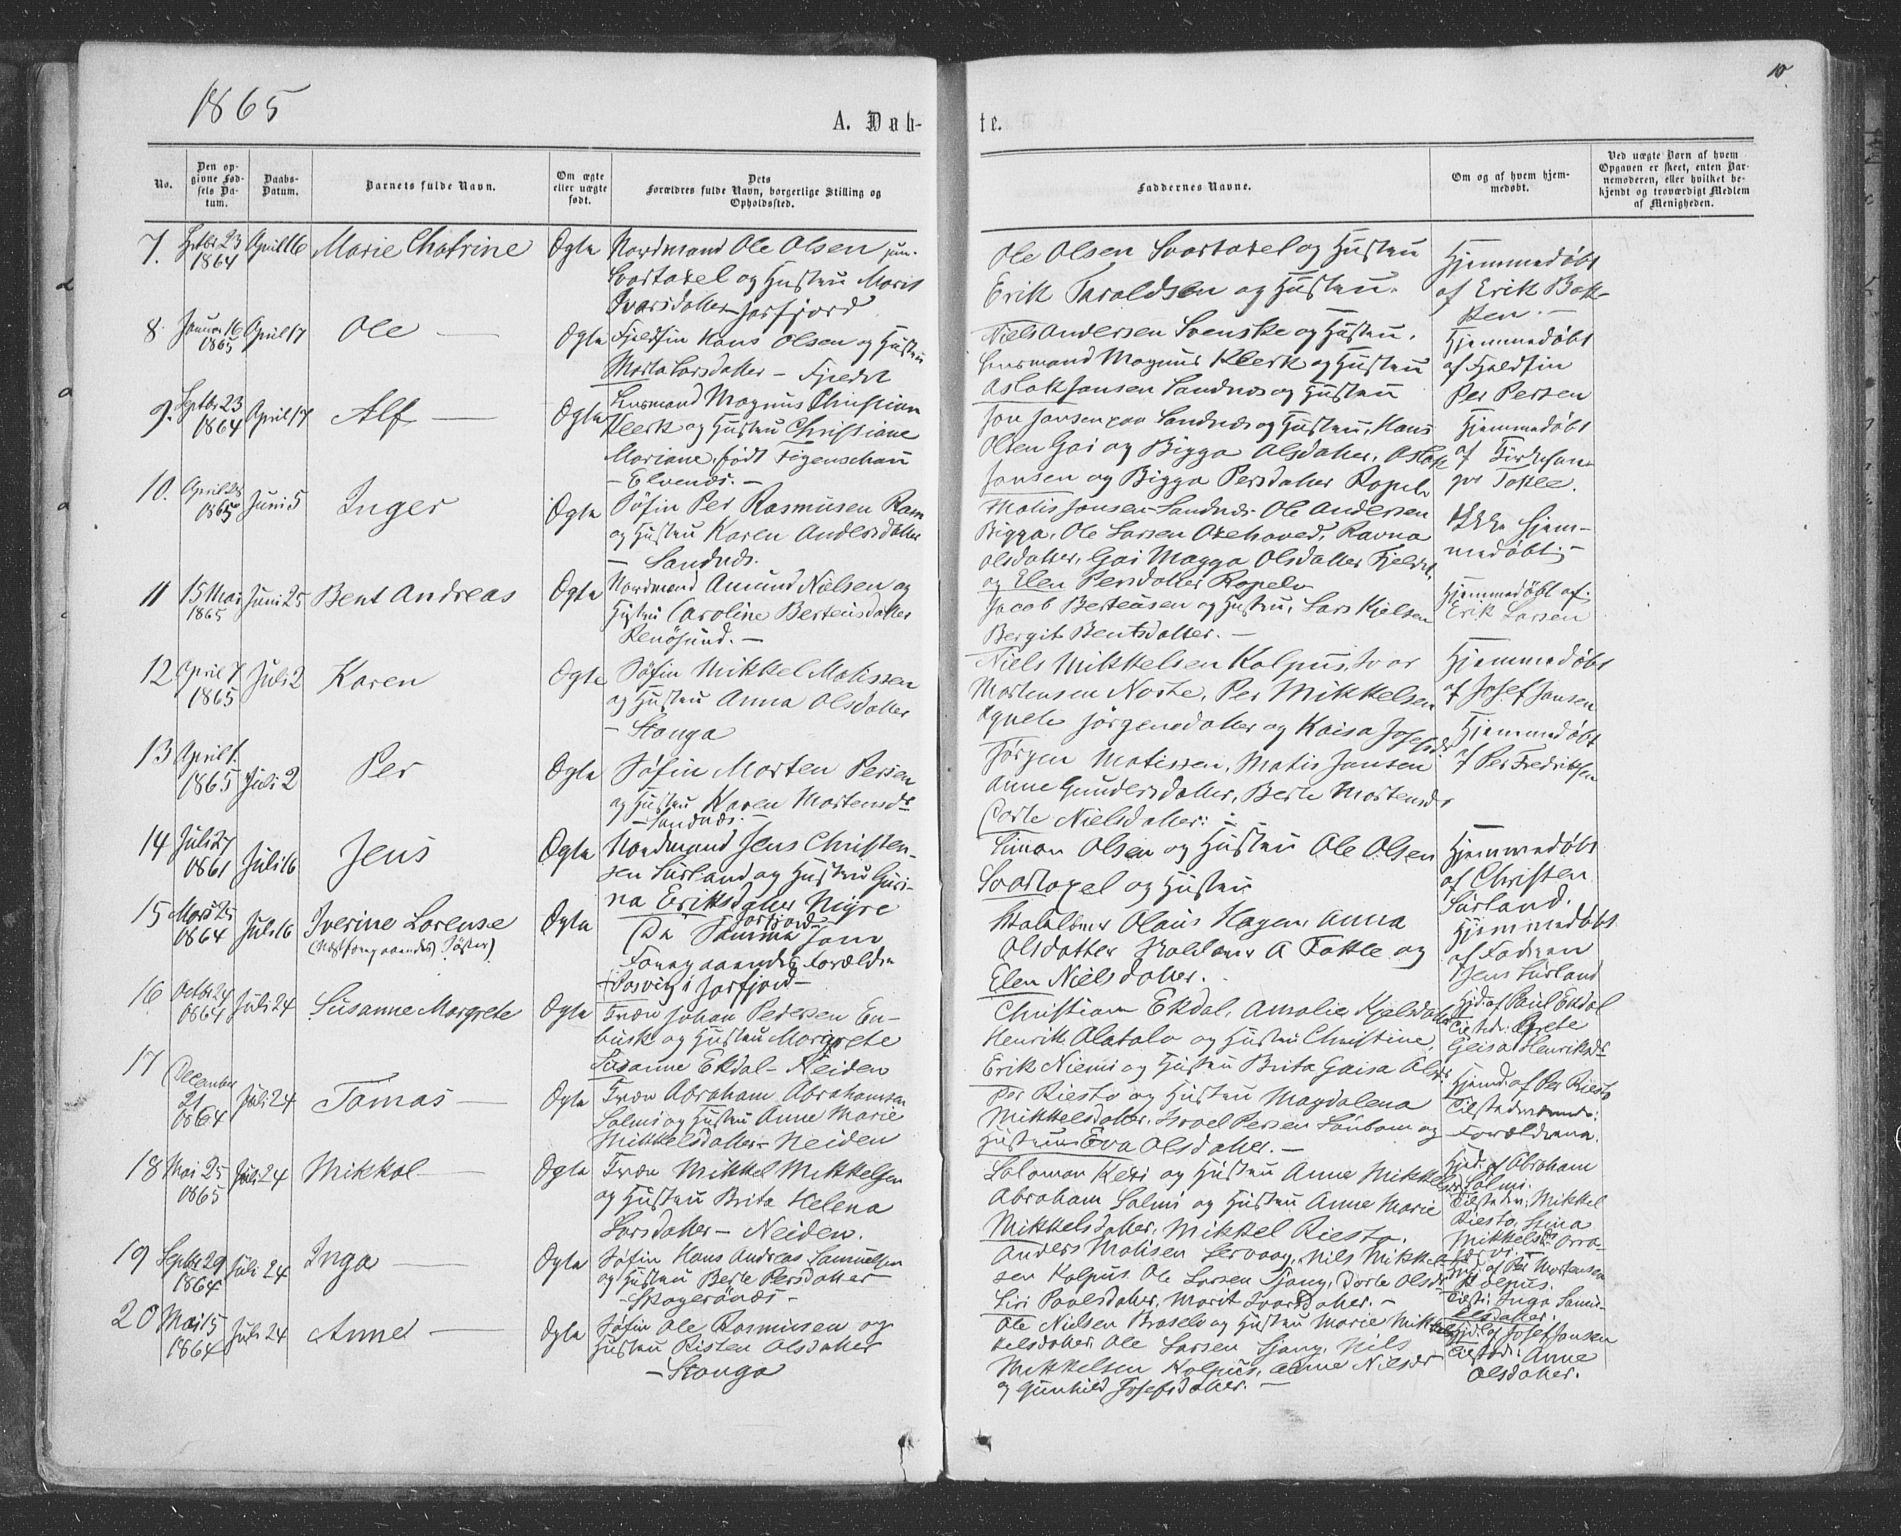 1865
10.
A. Døb-
te.
No.
Den op-
givne Fød-
sels Da-
tum.
Daabs-
Datum.
Barnets fulde Navn.
Om ægte
eller uægte
født.
Dets
Forældres fulde Navn, borgerlige Stilling og
Opholdssted.
Faddernes Navne.
Om og af hvem hjem-
medøbt.
Ved uægte Børn af hvem
Opgaven er skeet, enten Bar-
nemoderen, eller hvilket be-
kjendt og troværdigt Medlem
af Menigheden.
7. Septbr 23 1864 April 16 Marie Chatrine Ægte
Nordmand Ole Olsen jun.
Svartaxel og Hustru Marit
Ivarsdatter Jarfjord
Ole Olsen Svartaxel og Hustru
Erik Taraldsen og Hustru.
Hjemmedøbt
af Erik Bak-
ken.
8. Januar 16 1865 April 17 Ole Ægte
Fjeldfin Hans Olsen og Hustru
Marta Larsdatter - Fjeldet
Niels Andersen Svenske og Hustru.
Lensmand Magnus Klerk og Hustru
Aslak Jansen Sandnes og Hustru
Hjemmedøbt
af Fjeldfin
Per Persen
9. Septbr 23 1864 April 17 Alf Ægte
Lensmand Magnus Christian
Klerk og Hustru Christiane
Mariane, født Figenschau
- Elvenes. -
Jon Jansen paa Sandnes og Hustru, Hans
Olsen Gai og Bigga Olsdatter, Aslak
Jansen og Bigga Persdatter
Hjemmedøbt
af Kirkesan-
ger Tokle.
10. April 28 1865 Juni 5 Inger Ægte
Søfin Per Rasmusen Ram
og Hustru Karen Andersdatter
- Sandnes.
Matis Jansen Sandnes Ole Andersen
Bigga, Ole Larsen Oxehoved, Ravna
Olsdatter, Gai Magga Olsdatter Fjeldet,
og Elen Persdatter
Ikke hjem-
medøbt. -
11 15 Mai 1865 Juni 25 Bent Andreas Ægte
Nordmand Amund Nielsen og
Hustru Caroline Bertensdatter
Renøsund. -
Jacob Bertensen og Hustru, Lars Kjelsen
Bergit Bentsdatter. -
Hjemmedøbt af
Erik Larsen
12 April 7 1865 Juli 2 Karen Ægte
Søfin Mikkel Matissen
og Hustru Anna Olsdatter
- Stonga
Niels Mikkelsen Kolpus, Ivar
Mortensen Norte, Per Mikkelsen
Agnete Jørgensdatter og Kaisa Josefsdr
Hjemmedøbt
af Josef Jansen
13 April 1. 1865 Juli 2 Per Ægte
Søfin Morten Persen
og Hustru Karen Mortensdr
- Sandnes. -
Jørgen Matissen, Matis Jansen
Anne Gundersdatter, Berte Mortensdr
Dorte Nielsdatter.
Hjemmedøbt
af Per Fredriksen
14 Juli 27 1861 Juli 16 Jens Ægte
Nordmand Jens Christen-
sen Sørland og Hustru Guri-
na Eriksdatter Myre
Jarfjord
Simon Olsen og Hustru Ole Olsen
Svartaxel og Hustru
Hjemmedøbt
af Christen
Sørland.
15 Marts 25 1864 Juli 16 Iverine Lorense
(Næstforegaaendes Søster) Ægte
(De Samme som
Foregaaende Forældre
- Jarfjord -
Olaus Hagen, Anna
Olsdatter A Tokle og
Elen Nielsdatter.
Hjemmedøbt
af Faderen
Jens Sørland
16 Octbr 24 1864 Juli 24 Susanne Margrete Ægte
Kvæn Johan Pedersen En-
busk og Hustru Margrete
Susanne Ekdal - Neiden
Christian Ekdal, Amalie Kjelsdatter
Henrik Alatalo og Hustru Christine,
Erik Niemi og Hustru Brita Gaisa Olsdr
Hjd. af Paul Ekdal
Tilsted: Grete
Geisa Henriksdr
17 December 21 1864 Juli 24 Tomas Ægte
Kvæn Abraham Abrahamsen
Salmi og Hustru Anne Marie
Mikkelsdatter - Neiden
Per Riesto og Hustru Magdalena
Mikkelsdatter, Israel Persen og
Hustru Eva Olsdatter. -
Hjemd. af Per Riesto
Tilstedeværende:
Forældrene.
18 Mai 25 1865 Juli 24 Mikkal Ægte
Kvæn Mikkel Mikkelsen
og Hustru Brita Helena
Larsdatter - Neiden.
Salomon Keri og Hustru Anne Mikkelsdr
Abraham Salmi og Hustru Anne Marie
Mikkelsdatter, Mikkel Riesto.
Hjd. af Abraham
Salmi.
Tilstede, Mikkel
Riesto, Stina
Mikkelsdr
19 Septbr 29 1864 Juli 24 Inga Ægte
Søfin Hans Andreas Samuelsen
og Hustru Berte Persdatter
- Skogerønes -
Anders Matisen, Nils Mikkel-
sen Kolpus, Ole Larsen Sjang, Dorte Olsdr
Siri Paulsdatter, Marit Ivarsdatter. -
Hjd. af Per Mortensen
Kolpus.
Tilst: Inga Samu-
elsdatter.
20 Mai 5 1864 Juli 24 Anne Ægte
Søfin Ole Rasmusen og
Hustru Risten Olsdatter
- Stonga
Ole Nielsen og Hustru Marie Mik-
kelsdatter, Ole Larsen Sjang, Nils
Mikkelsen Kolpus, Anne Nilsdr
og Gunhild Josefsdatter. -
Hjd. af Josef Jansen
Tilsted: Anne
Olsdatter.